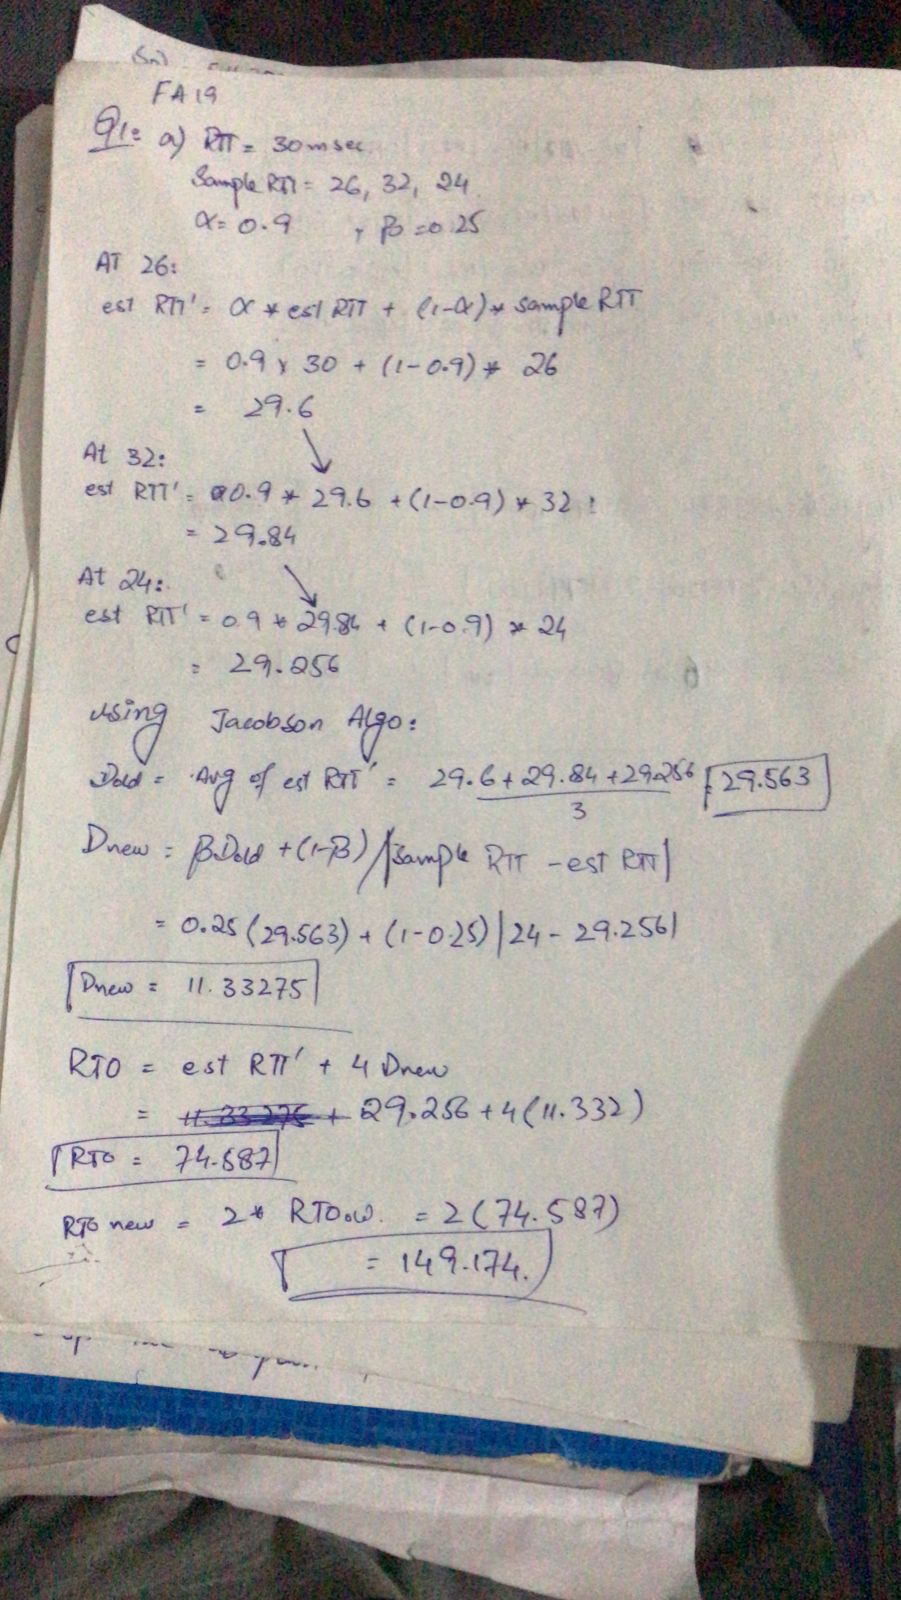 FA19
Q1: a) RTT = 30msec.
Sample RTT = 26, 32, 24
α = 0.9 , β = 0.25
AT 26:
est RTT' = α * est RTT + (1-α) * sample RTT
= 0.9 * 30 + (1-0.9) * 26
= 29.6
At 32:
est RTT' = 0.9 * 29.6 + (1-0.9) * 32
= 29.84
At 24:
est RTT' = 0.9 * 29.84 + (1-0.9) * 24
= 29.256
using Jacobson Algo:
Dold = Avg of est RTT' = 29.6 + 29.84 + 29.256 / 3 = 29.563
Dnew = β.Dold + (1-β) |sample RTT - est RTT|
= 0.25 (29.563) + (1-0.25) |24 - 29.256|
Dnew = 11.33275
RTO = est RTT' + 4 Dnew
= 29.256 + 4(11.332)
RTO = 74.587
RTO new = 2 * RTO = 2(74.587)
= 149.174.